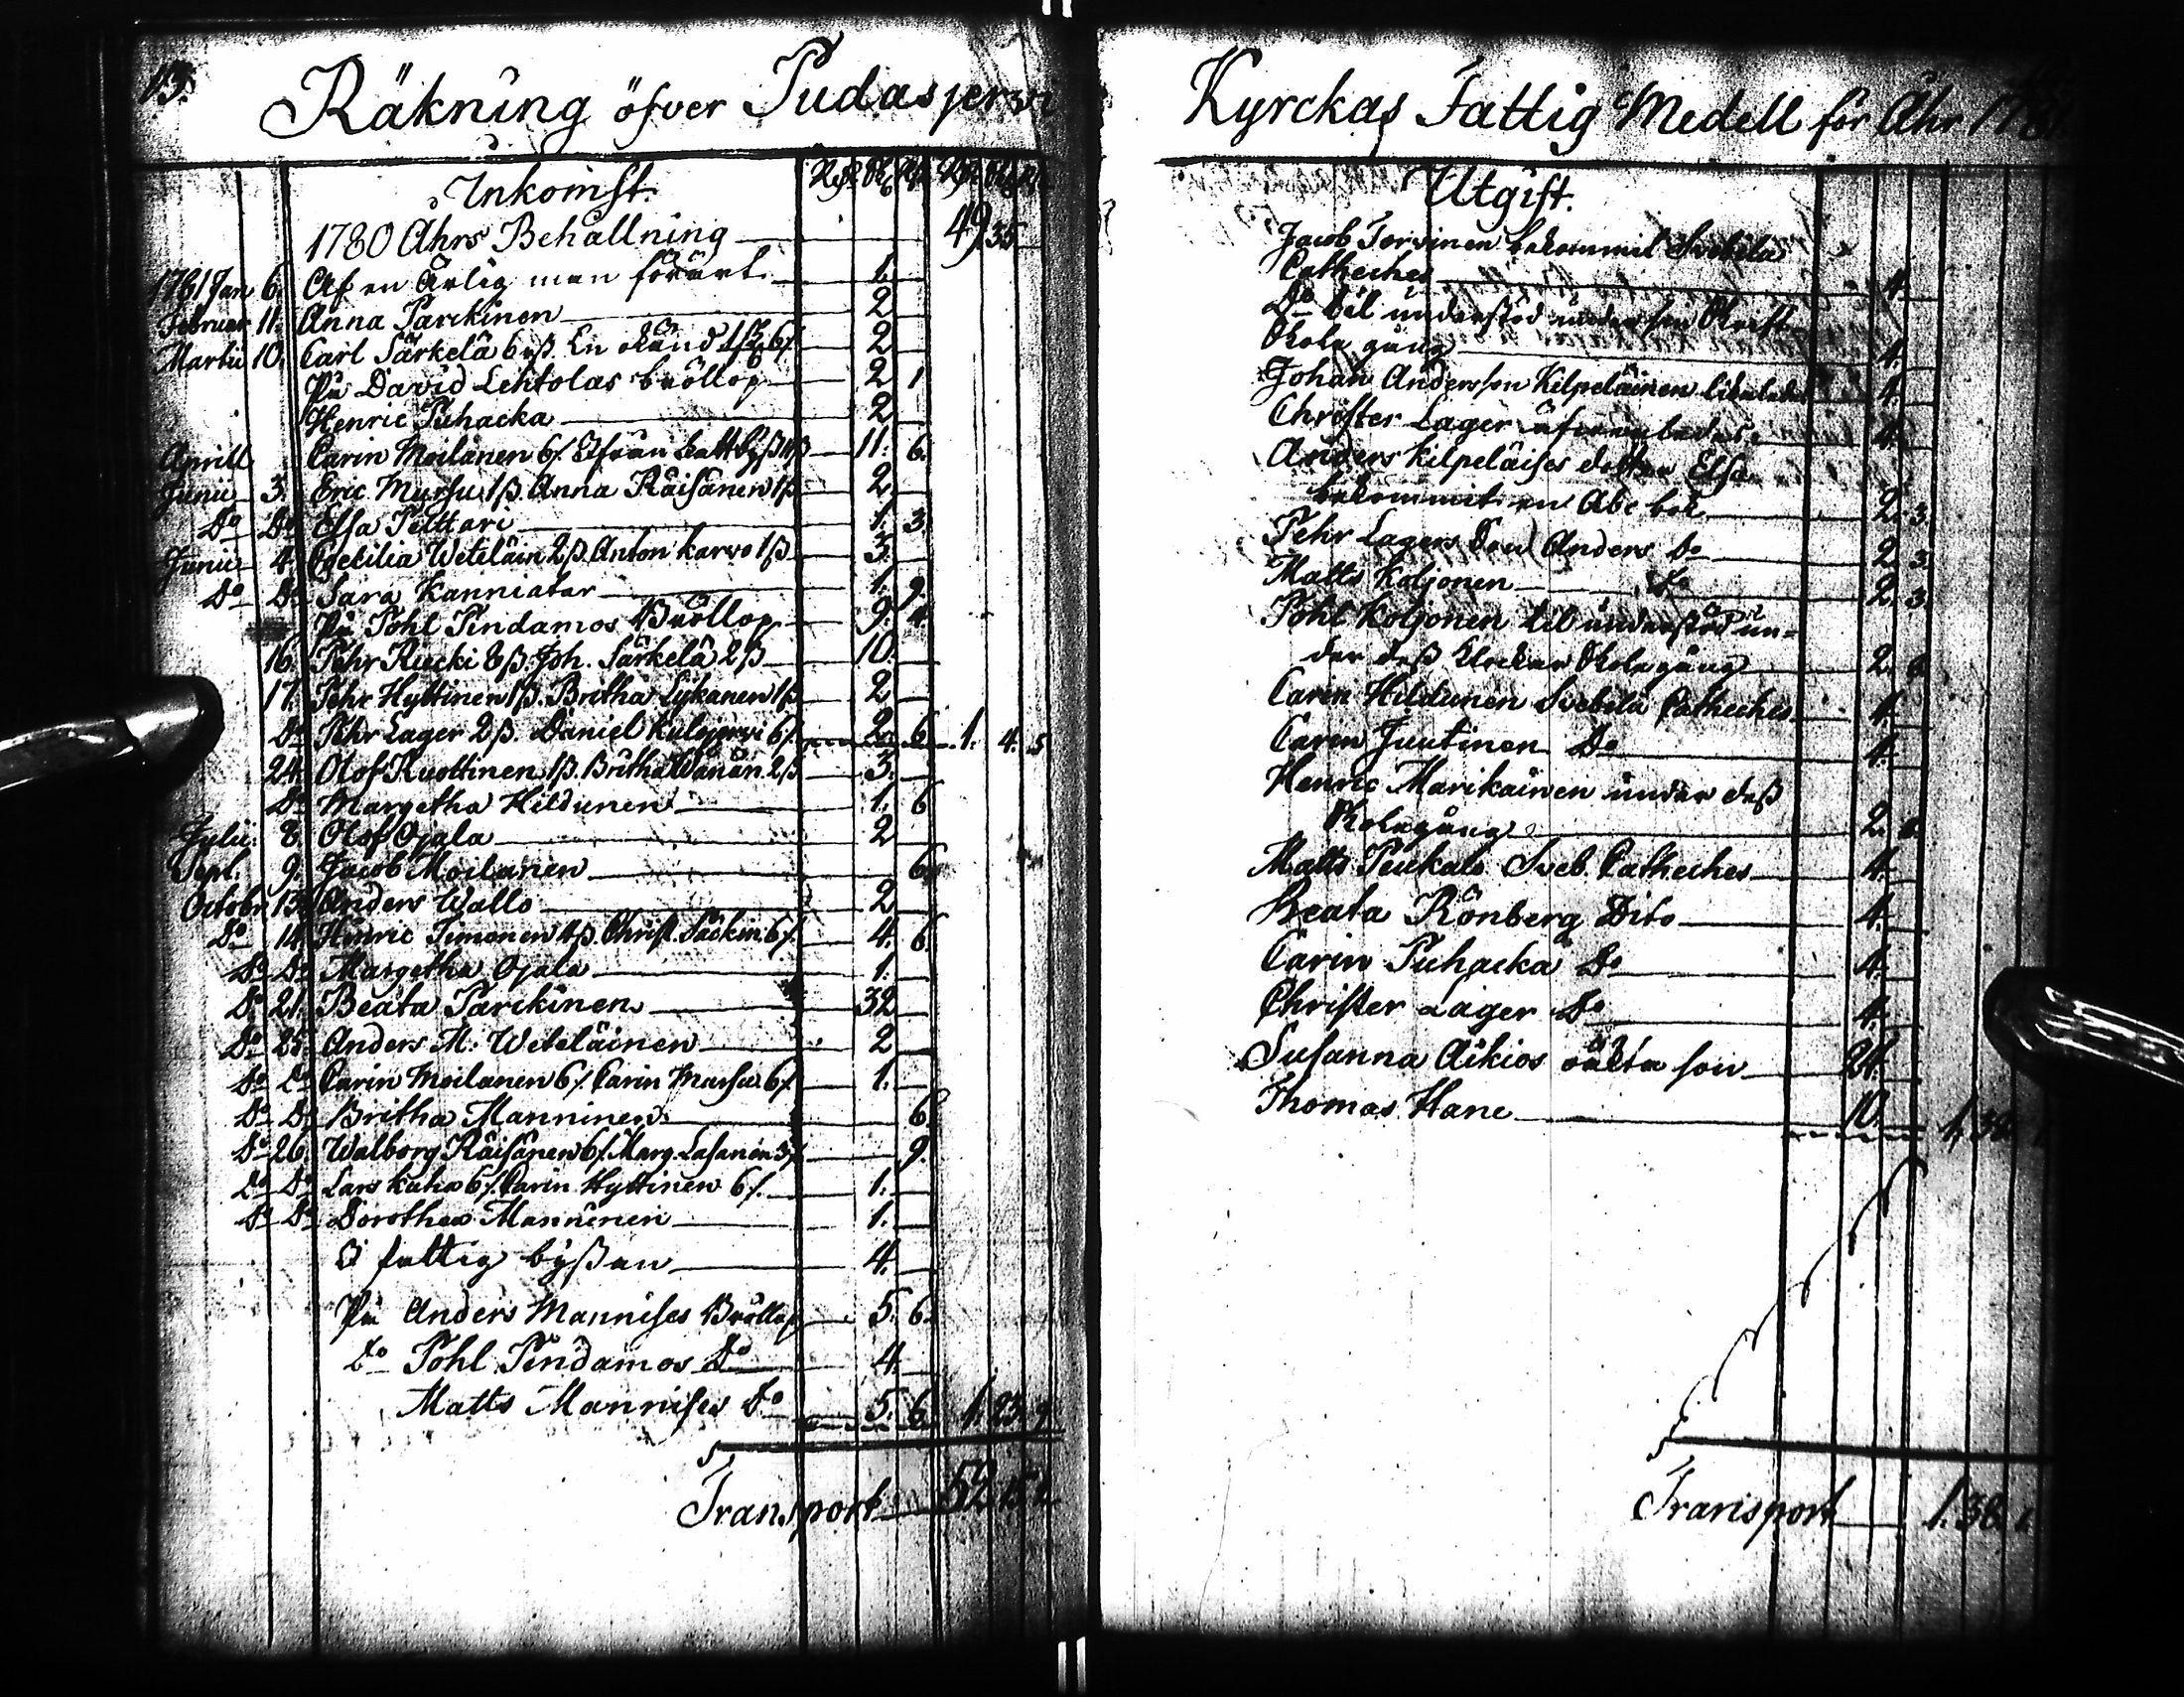 13.
Räkning öfver Pudasjervi
Inkomst.
1780 Åhrs Behållning 49 35
1781 Jan 6. Af en Ärlig man förärt 1.
Februar 11. Anna Parckinen 2
Martii 10. Carl Särkelä 6 ß. En okänd 2
På David Lehtolas bröllop 2 1
Henric Puhacka 2
Aprill Carin Moilanen 6/. 11. 6.
Junii 3. Eric Mursu 1 ß. Anna Räisänen 1 ß 2
Do Do Elsa Pelttari 1. 3.
Junii 4. Caecilia Weteläin 2 ß. Anton Karvo 1 ß 3.
Do Do Sara Kanniatar 1. 9.
På Pohl Pindamos Bröllop 9. 4.
16. Pehr Rucki 8 ß. Joh. Särkelä 2 ß 10.
17. Pehr Hyttinen 1 ß. Britha Lykanen 1 ß 2
Do Pehr Lager 2 ß. Daniel Kulojervi 6/. 2. 6. 1. 4. 5
24. Olof Ruottinen 1 ß. Britha Wänän. 2 ß 3.
Do Margetha Hildunen 1. 6
Julii 8. Olof Ojala 2
Sept. 9. Jacob Moilanen 6.
Octobr. 13. Anders Wallo 2
Do 14. Henric Timonen 4 ß. Christ. Säckin. 6/. 4. 6.
Do Do Margetha Ojala 1.
Do 21. Beata Parckinen 32
Do 25. Anders M. Weteläinen 2
Do Do Carin Moilanen 6/. Carin Mursu 6/. 1.
Do Do Britha Manninen 6.
Do 26. Walborg Räisänen 6/. Marg. Lasanen 3/. 9.
Do Do Lars Kuha 6/. Carin Hyttinen 6/. 1.
Do Do Dorothea Manninen 1.
I fattig byßan 4.
På Anders Mannises Bröllop 5. 6.
Do Pohl Pindamos Do 4.
Matts Mannises Do 5. 6. 1. 23. 9
Transport 52 15 2
Kyrckas Fattig Medell för Åhr 1781.
Utgift.
Jacob Torvinen bekommit Svebelii
Catheches 4.
Do til understöd under
Skola gång 4.
Johan Andersson Kilpeläinen likaledes 4.
Christer Lager 4.
Anders Kilpeläises dotter Elsa
bekommit en Abc bok 2. 3.
Pehr Lagers Son Anders Do 2. 3.
Matts Koljonen Do 2. 3.
Pohl Koljonen til understöd un=
der deß Skolagång 2.
Carin Hildunen Svebelii Catheches 4.
Carin Juutinen Do 4.
Henric Marikainen under deß
Skolagång 2.
Matts Puukalo Sveb. Catheches 4.
Beata Rönberg Dito 4.
Carin Puhacka Do 4.
Christer Lager Do 4.
Susanna Aikios oäkta son 24.
Thomas Hane 10. 1. 38.
Transport 1. 38. 1.